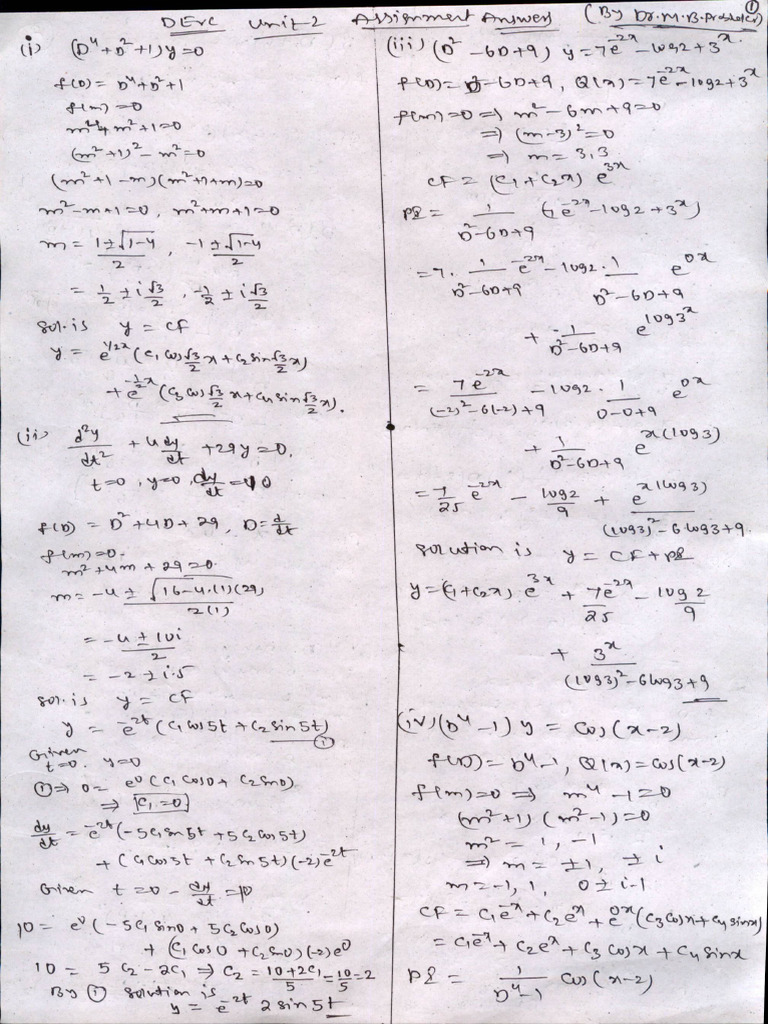 DEVC Unit-2 Assignment Answers (By Dr.M.B.
①
(i) (D⁴+D²+1)y=0
f(D) = D⁴+D²+1
f(m)=0
m⁴+m²+1=0
(m²+1)²-m²=0
(m²+1-m)(m²+1+m)=0
m²-m+1=0, m²+m+1=0
m = (1±√(1-4))/2, (-1±√(1-4))/2
= 1/2 ± i √3/2, -1/2 ± i √3/2
Sol. is y = CF
y = e^(1/2x) (c₁ cos √3/2 x + c₂ sin √3/2 x)
+ e^(-1/2x) (c₃ cos √3/2 x + c₄ sin √3/2 x).
(ii) d²y/dt² + 4 dy/dt + 29y=0,
t=0, y=0, dy/dt = 10
f(D) = D²+4D+29, D = d/dt
f(m)=0.
m²+4m+29=0.
m = (-4 ± √(16-4.(1)(29)))/2(1)
= (-4 ± 10i)/2
= -2 ± i.5
Sol. is y = CF
y = e^(-2t) (c₁ cos 5t + c₂ sin 5t) ①
Given
t=0. y=0
①⇒ 0 = e⁰ (c₁ cos0 + c₂ sin0)
⇒ c₁=0
dy/dt = e^(-2t) (-5c₁ sin 5t + 5c₂ cos 5t)
+ (c₁ cos 5t + c₂ sin 5t)(-2)e^(-2t)
Given t=0 - dy/dt = 10
10 = e⁰ (-5c₁ sin0 + 5c₂ cos0)
+ (c₁ cos0 + c₂ sin0)(-2)e⁰
10 = 5c₂ - 2c₁ ⇒ c₂ = (10+2c₁)/5 = 10/5 = 2
By ① solution is
y = e^(-2t) 2 sin 5t
(iii) (D²-6D+9) y = 7e^(-2x) - log2 + 3^x.
f(D) = D²-6D+9, Q(x) = 7e^(-2x) - log2 + 3^x
f(m)=0 ⇒ m²-6m+9=0
⇒ (m-3)²=0
⇒ m = 3,3
CF = (c₁+c₂x) e^(3x)
PI = 1/(D²-6D+9) (7e^(-2x) - log2 + 3^x)
= 7. 1/(D²-6D+9) e^(-2x) - log2. 1/(D²-6D+9) e^(0x)
+ 1/(D²-6D+9) e^(log3^x)
= 7e^(-2x)/((-2)²-6(-2)+9) - log2. 1/(0-0+9) e^(0x)
+ 1/(D²-6D+9) e^(x(log3))
= 7/25 e^(-2x) - log2/9 + e^(x(log3))/((log3)²-6log3+9).
Solution is y = CF+PI
y = (c₁+c₂x) e^(3x) + 7e^(-2x)/25 - log2/9
+ 3^x/((log3)²-6log3+9)
(iv) (D⁴-1) y = cos(x-2)
f(D) = D⁴-1, Q(x) = cos(x-2)
f(m)=0 ⇒ m⁴-1=0
(m²+1)(m²-1)=0
m² = 1, -1
⇒ m = ±1, ±i
m = -1, 1, 0±i.1
CF = c₁e^(-x) + c₂e^x + e^(0x) (c₃ cosx + c₄ sinx)
= c₁e^(-x) + c₂e^x + c₃ cosx + c₄ sinx
PI = 1/(D⁴-1) cos(x-2)